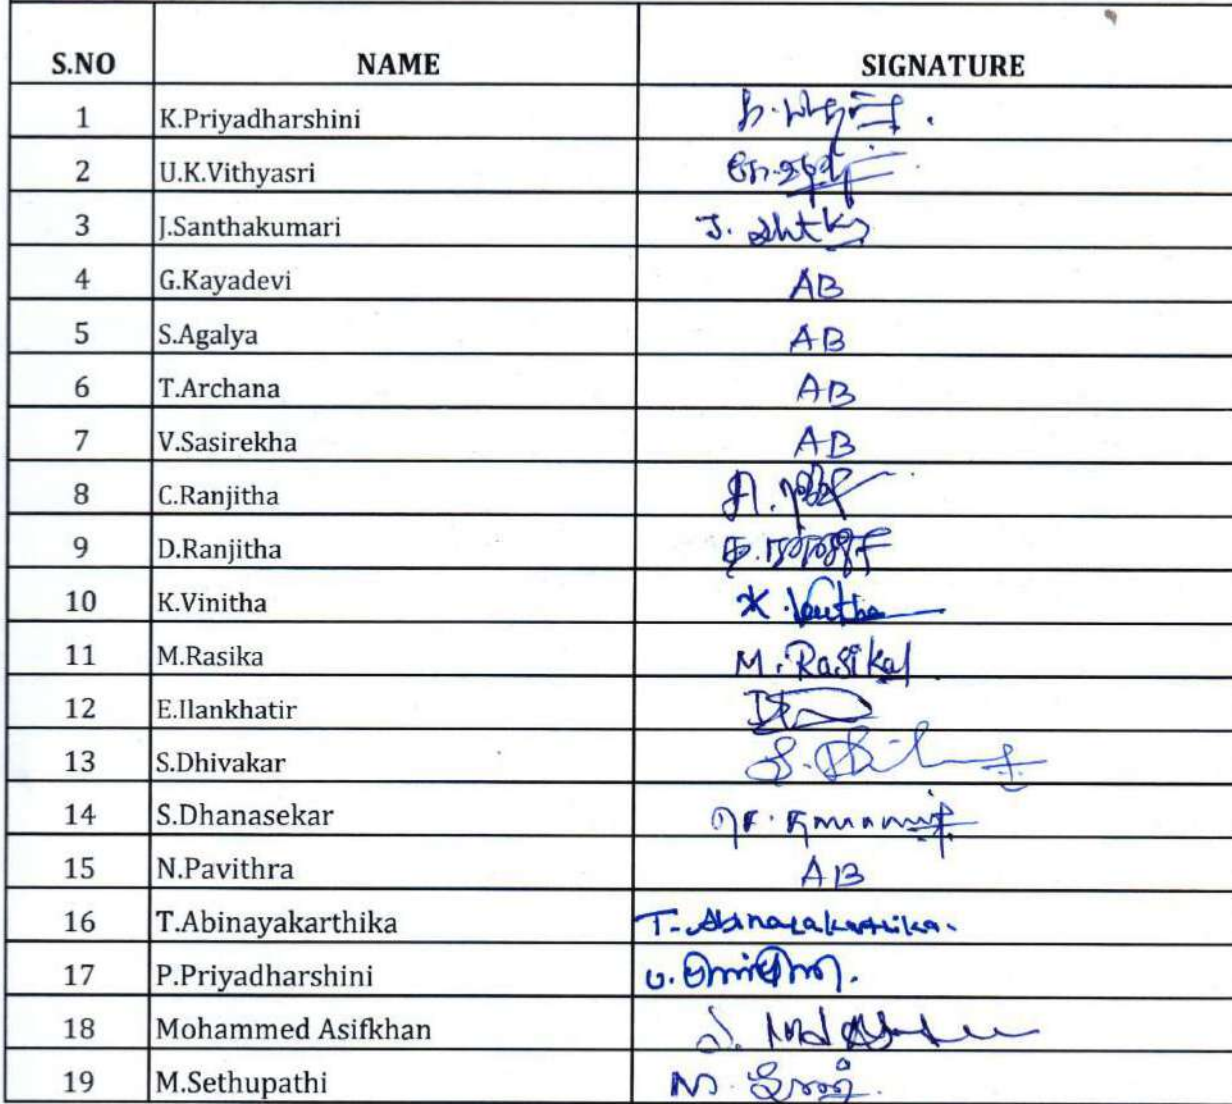 S.NO NAME SIGNATURE
1 K.Priyadharshini
2 U.K.Vithyasri
3 J.Santhakumari J.
4 G.Kayadevi AB
5 S.Agalya AB
6 T.Archana AB
7 V.Sasirekha AB
8 C.Ranjitha
9 D.Ranjitha
10 K.Vinitha K.Vinitha
11 M.Rasika M.Rasika
12 E.Ilankhatir
13 S.Dhivakar
14 S.Dhanasekar
15 N.Pavithra AB
16 T.Abinayakarthika T-Abinayakarthika.
17 P.Priyadharshini
18 Mohammed Asifkhan
19 M.Sethupathi